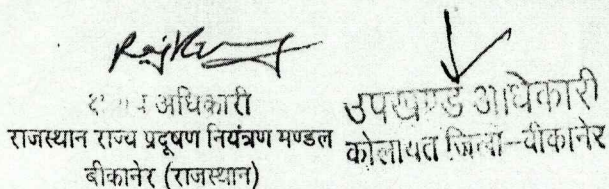 RajKu
अधिकारी
राजस्थान राज्य प्रदूषण नियंत्रण मण्डल
बीकानेर (राजस्थान)
उपखण्ड अधिकारी
कोलायत जिला-बीकानेर